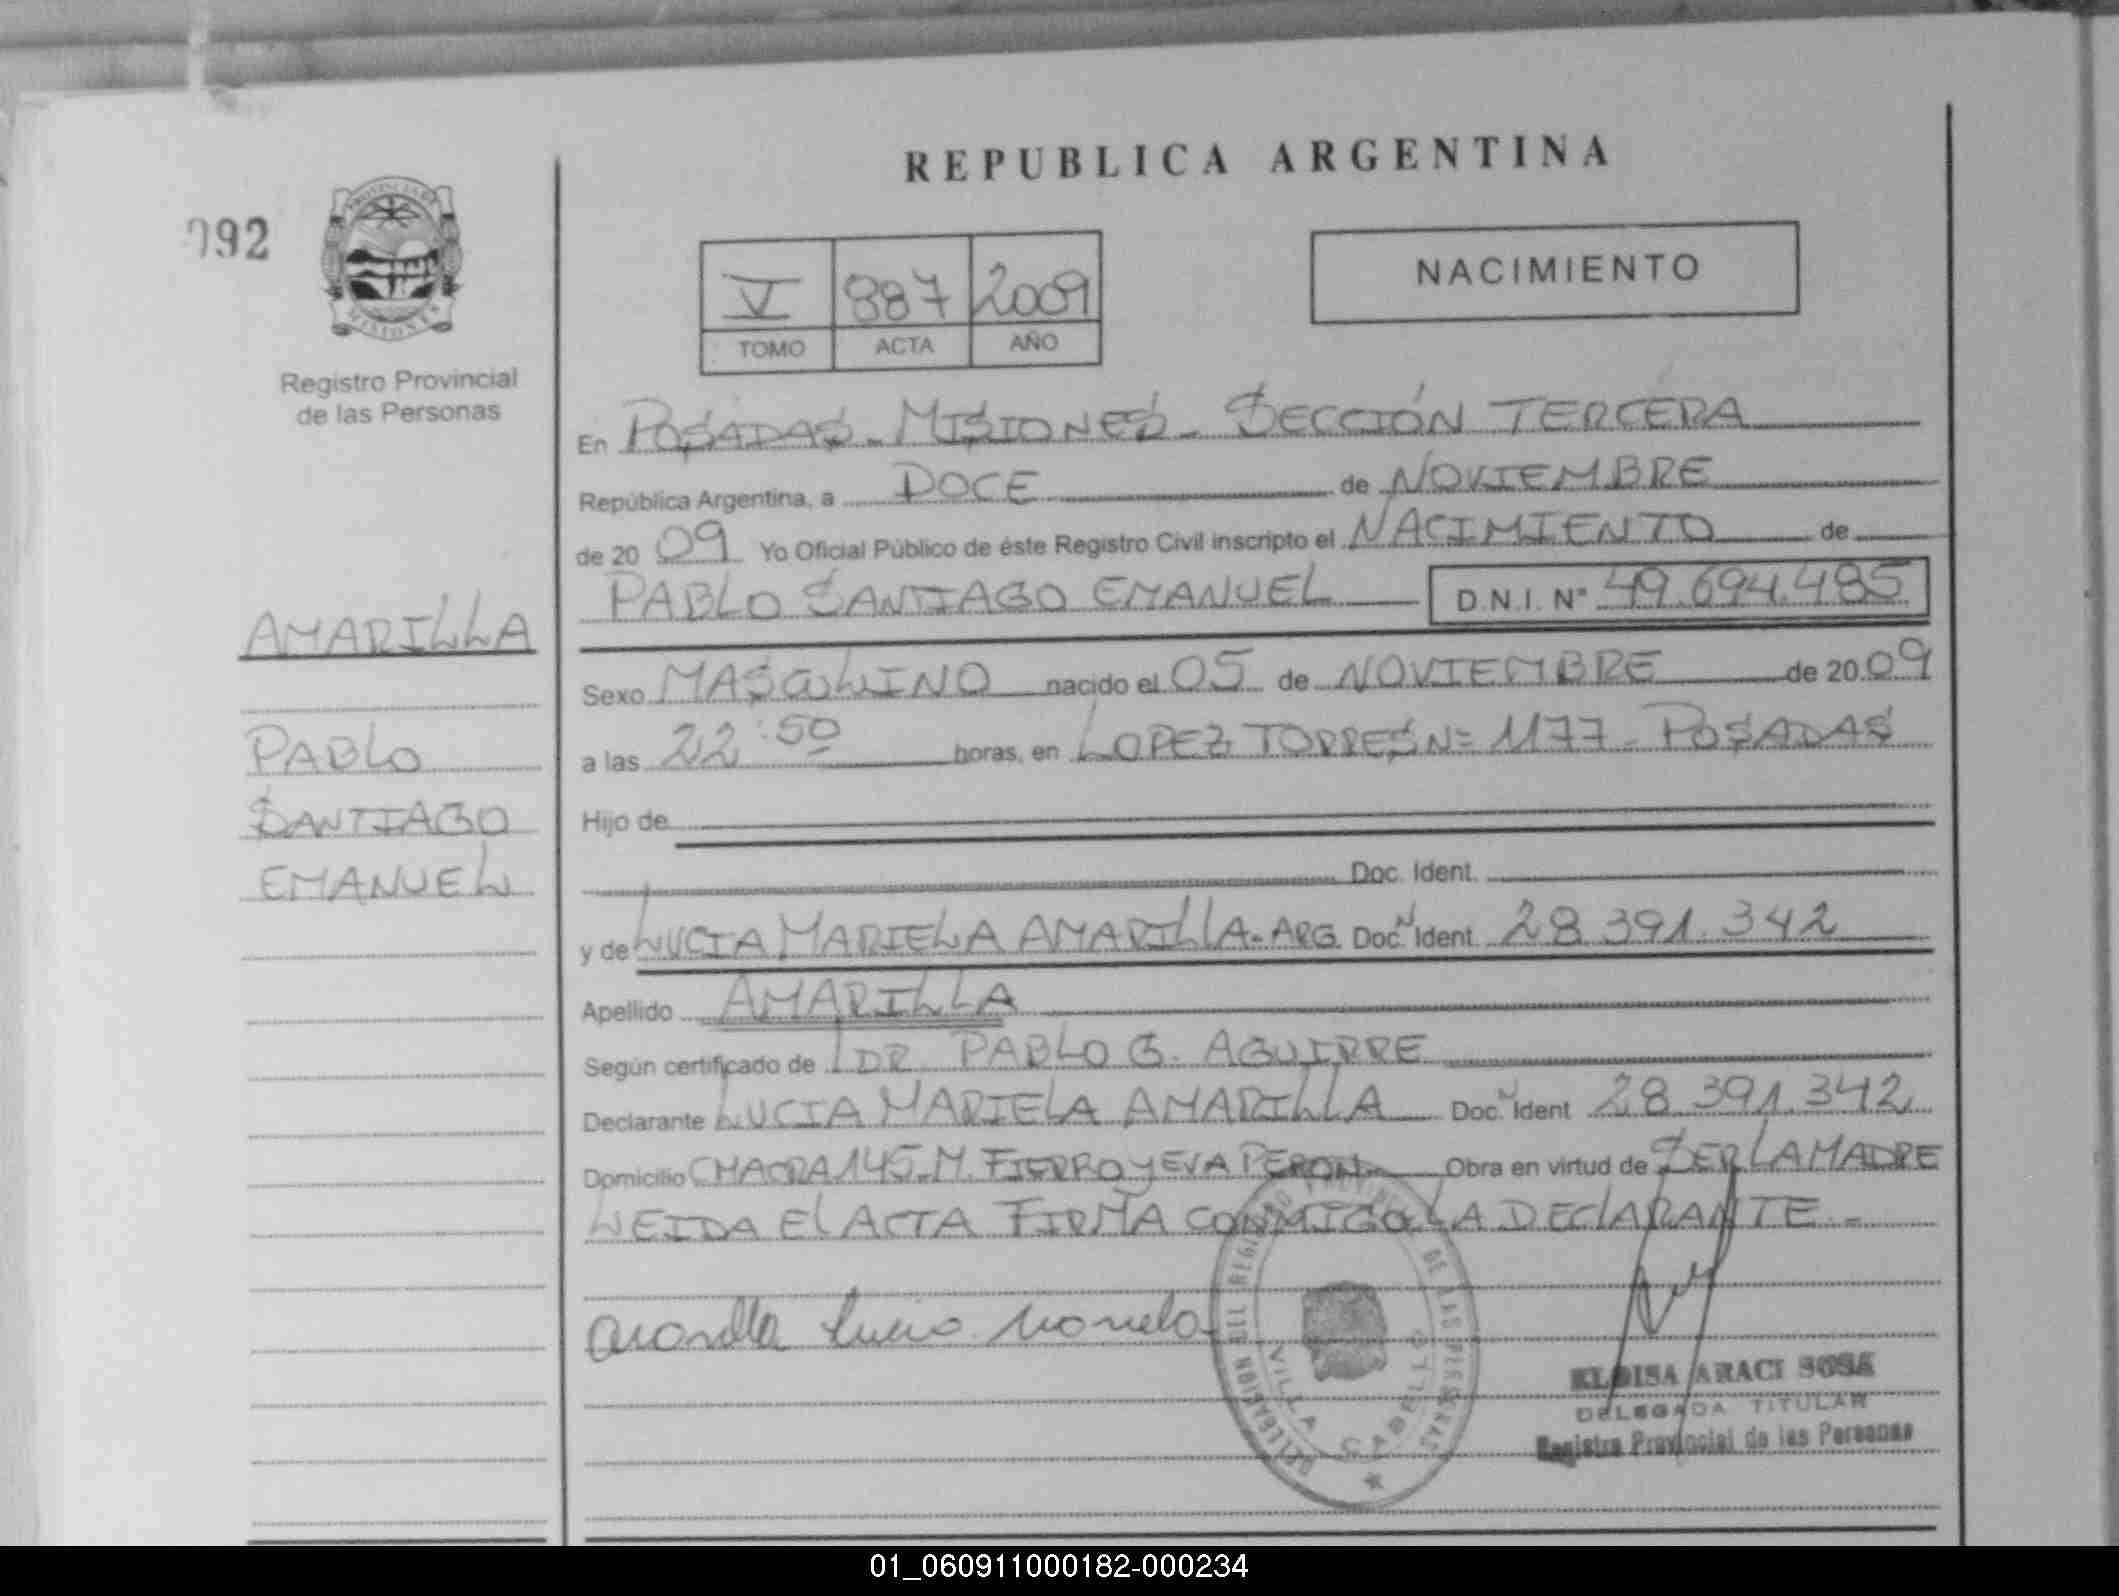 REPUBLICA ARGENTINA
092
PROVINCIA DE
MISIONES
Registro Provincial
de las Personas
V 887 2009
TOMO ACTA AÑO
NACIMIENTO
En POSADAS - MISIONES - SECCIÓN TERCERA
República Argentina, a DOCE de NOVIEMBRE
de 20 09 Yo Oficial Público de éste Registro Civil inscripto el NACIMIENTO de
PABLO SANTIAGO EMANUEL D.N.I. Nº 49.694.485
AMARILLA
PABLO
SANTIAGO
EMANUEL
Sexo MASCULINO nacido el 05 de NOVIEMBRE de 20 09
a las 22:50 horas, en LOPEZ TORRES Nº 1177 - POSADAS
Hijo de
Doc. Ident.
y de LUCIA MARIELA AMARILLA - ARG. Doc. N Ident. 28.391.342
Apellido AMARILLA
Según certificado de DR. PABLO G. AGUIRRE
Declarante LUCIA MARIELA AMARILLA Doc. N Ident 28.391.342
Domicilio CHACRA 145 - M. FIERRO y EVA PERON Obra en virtud de SER LA MADRE
LEIDA EL ACTA FIRMA CONMIGO LA DECLARANTE. -
Amarilla Lucia Mariela
DELEGACION DEL REGISTRO PROVINCIAL DE LAS PERSONAS
VILLA CABELLO
ELOISA ARACI SOSA
DELEGADA TITULAR
Registro Provincial de las Personas
01_060911000182-000234